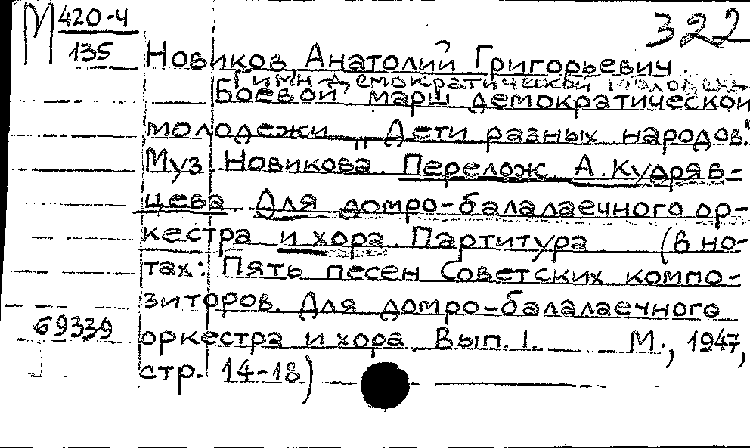 М 420-4
135
322
Новиков Анатолий Григорьевич
Гимн демократической молодежи
Боевой марш демократической
молодежи „Дети разных народов."
Муз. Новикова. Перелож. А. Кудряв-
цева. Для домро-балалаечного ор-
кестра и хора. Партитура (в но-
тах: Пять песен Советских компо-
зиторов. Для домро-балалаечного
69339 оркестра и хора. Вып. 1. М., 1947,
стр. 14-18)